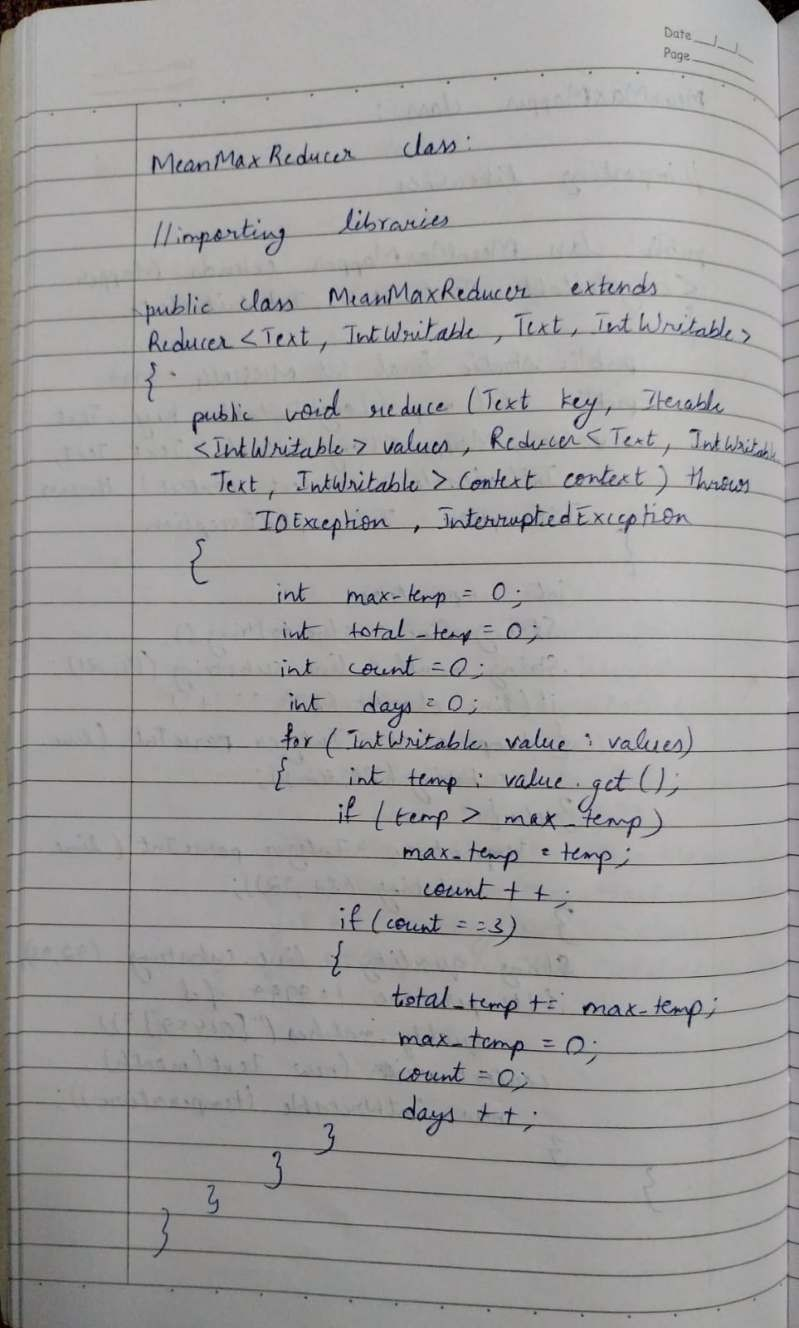 Date
Page
MeanMaxReducer class:
//importing libraries
public class MeanMaxReducer extends
Reducer <Text, IntWritable, Text, IntWritable>
{
public void reduce (Text key, Iterable
<IntWritable> values, Reducer <Text, IntWritable
Text, IntWritable> Context context) throws
IOException, InterruptedException
{
int max-temp = 0;
int total_temp = 0;
int count = 0;
int days = 0;
for (IntWritable value : values)
{ int temp : value.get();
if (temp > max_temp)
max_temp = temp;
count ++;
if (count == 3)
{
total_temp += max_temp;
max_temp = 0;
count = 0;
days ++;
}
}
}
}